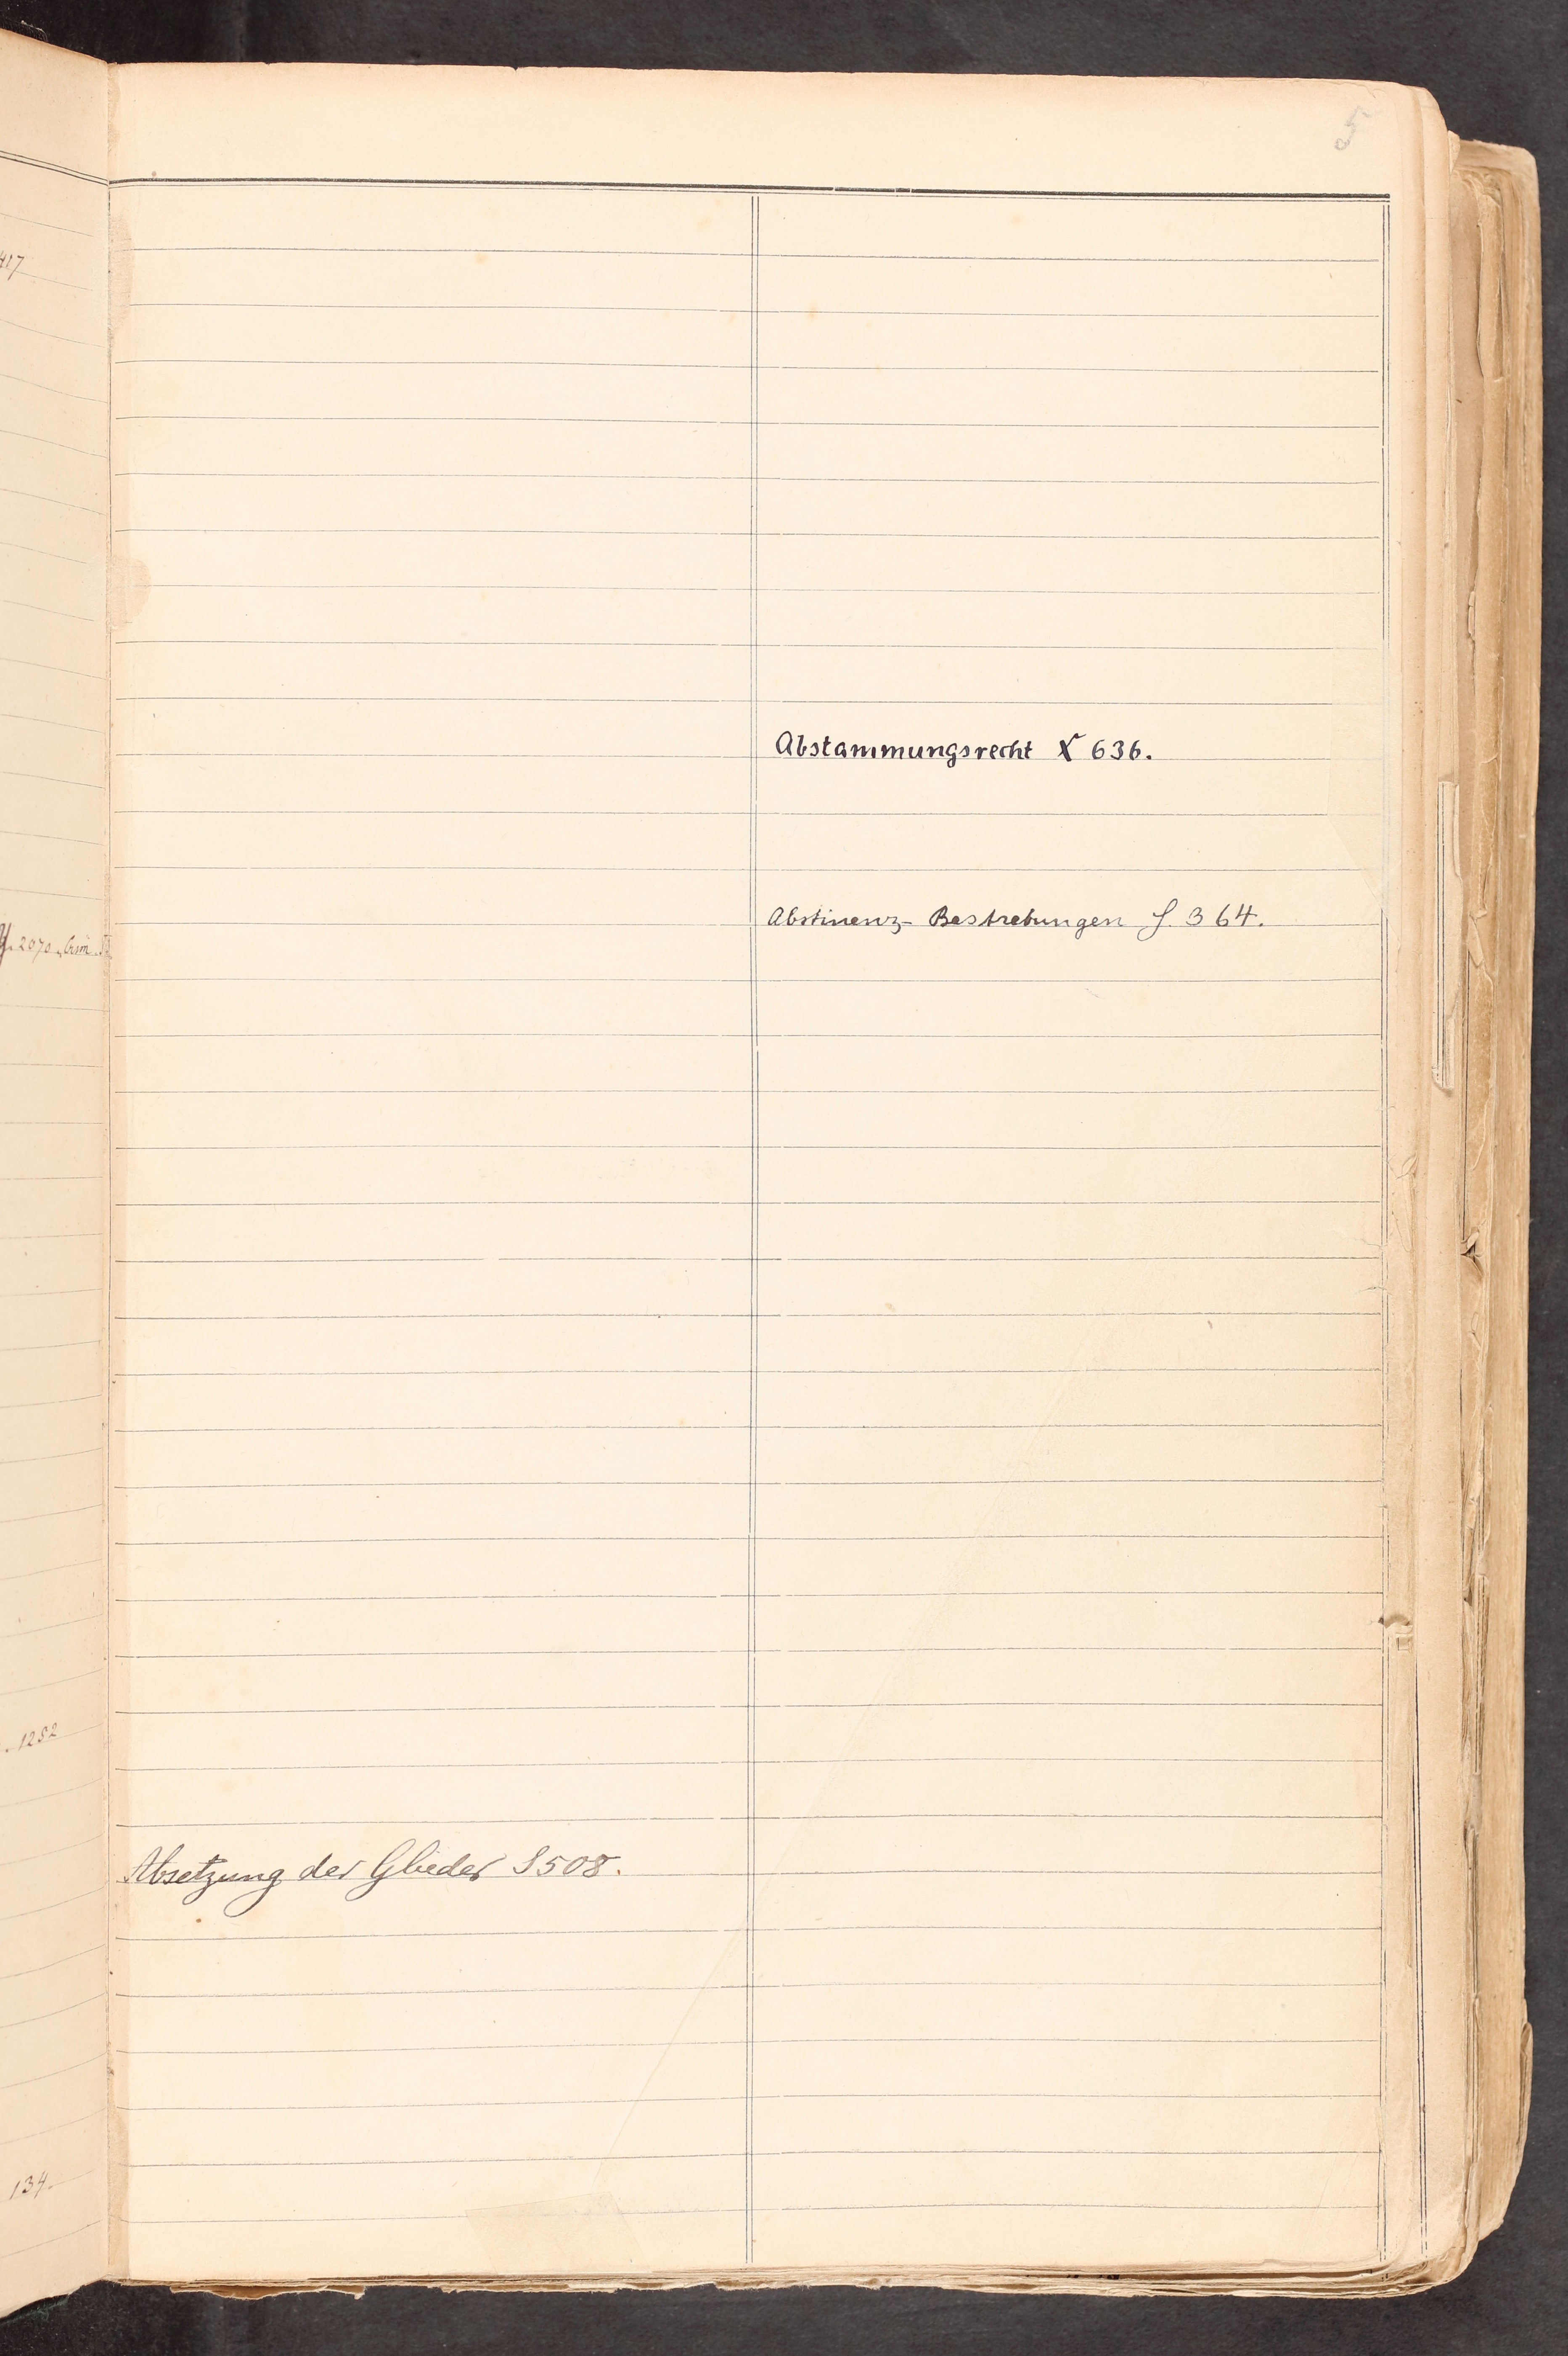 5
417
2070
1282
134.
Absetzung der Glieder S 508.
Abstammungsrecht X 636.
Abstinenz- Bestrebungen S. 364.